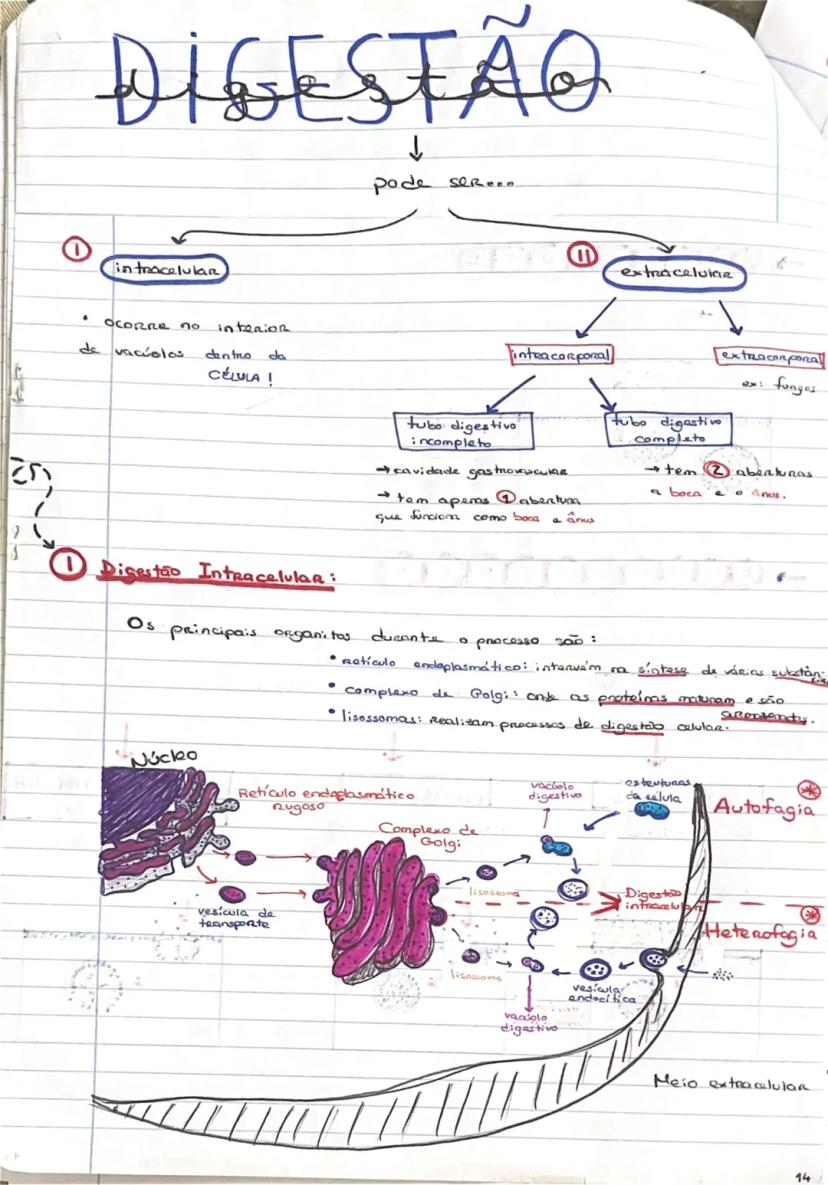 DIGESTÃO
digestão
pode ser...
I
intracelular
II
extracelular
• ocorre no interior
de vacúolos dentro da
CÉLULA!
intracorporal
extracorporal
ex: fungos
tubo digestivo
incompleto
tubo digestivo
completo
→ cavidade gastrovascular
→ tem apenas 1 abertura
que funciona como boca e ânus
→ tem 2 aberturas
a boca e o ânus.
I Digestão Intracelular:
Os principais organitos durante o processo são:
• retículo endoplasmático: intervém na síntese de várias
• complexo de Golgi: onde as proteínas maturam e são
• lisossomas: Realizam processos de digestão celular.
Núcleo
Retículo endoplasmático
rugoso
Complexo de
Golgi
vesícula de
transporte
vacúolo
digestivo
estruturas
da célula
Autofagia
lisossoma
Digestão
intracelular
Heterofagia
lisossoma
vesícula
endocítica
vacúolo
digestivo
Meio extracelular
14